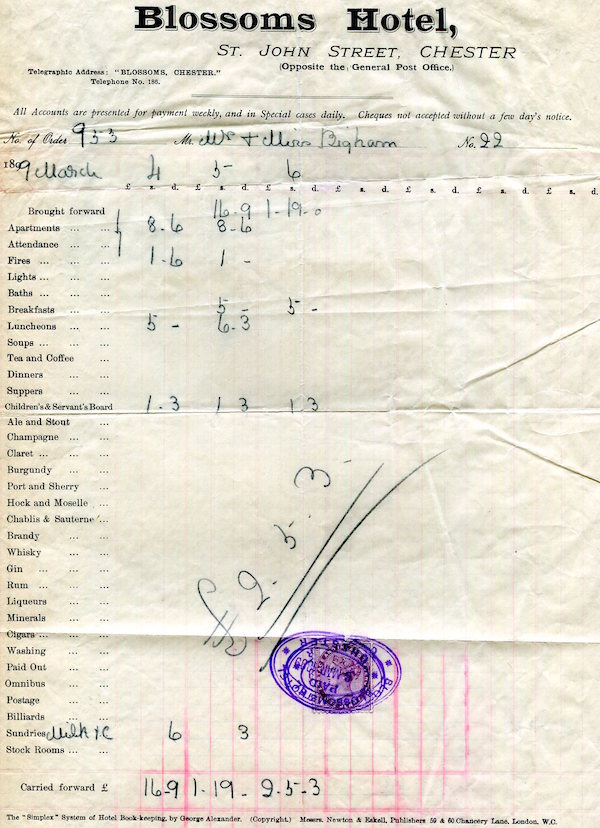 Blossoms Hotel,
ST. JOHN STREET, CHESTER
(Opposite the General Post Office.)
Telegraphic Address: "BLOSSOMS, CHESTER."
Telephone No. 186.
All Accounts are presented for payment weekly, and in Special cases daily. Cheques not accepted without a few day's notice.
No. of Order 933 Mr. Mrs & Miss Bigham No. 22
1899 March 4 5 6
£ s. d. £ s. d. £ s. d. £ s. d. £ s. d. £ s. d. £ s. d. £ s. d.
Brought forward 16-9 1-19-0
Apartments ... ... 8-6 8-6
Attendance ... ...
Fires ... ... ... 1-6 1 -
Lights ... ... ...
Baths ... ... ...
Breakfasts ... ... 5 - 5 -
Luncheons ... ... 5 - 6-3
Soups ... ... ...
Tea and Coffee ...
Dinners ... ...
Suppers ... ...
Children's & Servant's Board 1-3 1 3 1 3
Ale and Stout ...
Champagne ... ...
Claret ... ... ...
Burgundy ... ...
Port and Sherry ...
Hock and Moselle ...
Chablis & Sauterne ...
Brandy ... ...
Whisky ... ...
Gin ... ... ...
Rum ... ... ...
Liqueurs ... ...
Minerals ... ...
Cigars ... ... ...
Washing ... ...
Paid Out ... ...
Omnibus ... ...
Postage ... ...
Billiards ... ...
Sundries Milk &c 6 3
Stock Rooms ... ...
Carried forward £ 16-9 1-19- 2-5-3
£2.5.3
BLOSSOMS HOTEL
PAID
CHESTER
The "Simplex" System of Hotel Book-keeping, by George Alexander. (Copyright.) Messrs. Newton & Eskell, Publishers 59 & 60 Chancery Lane, London, W.C.